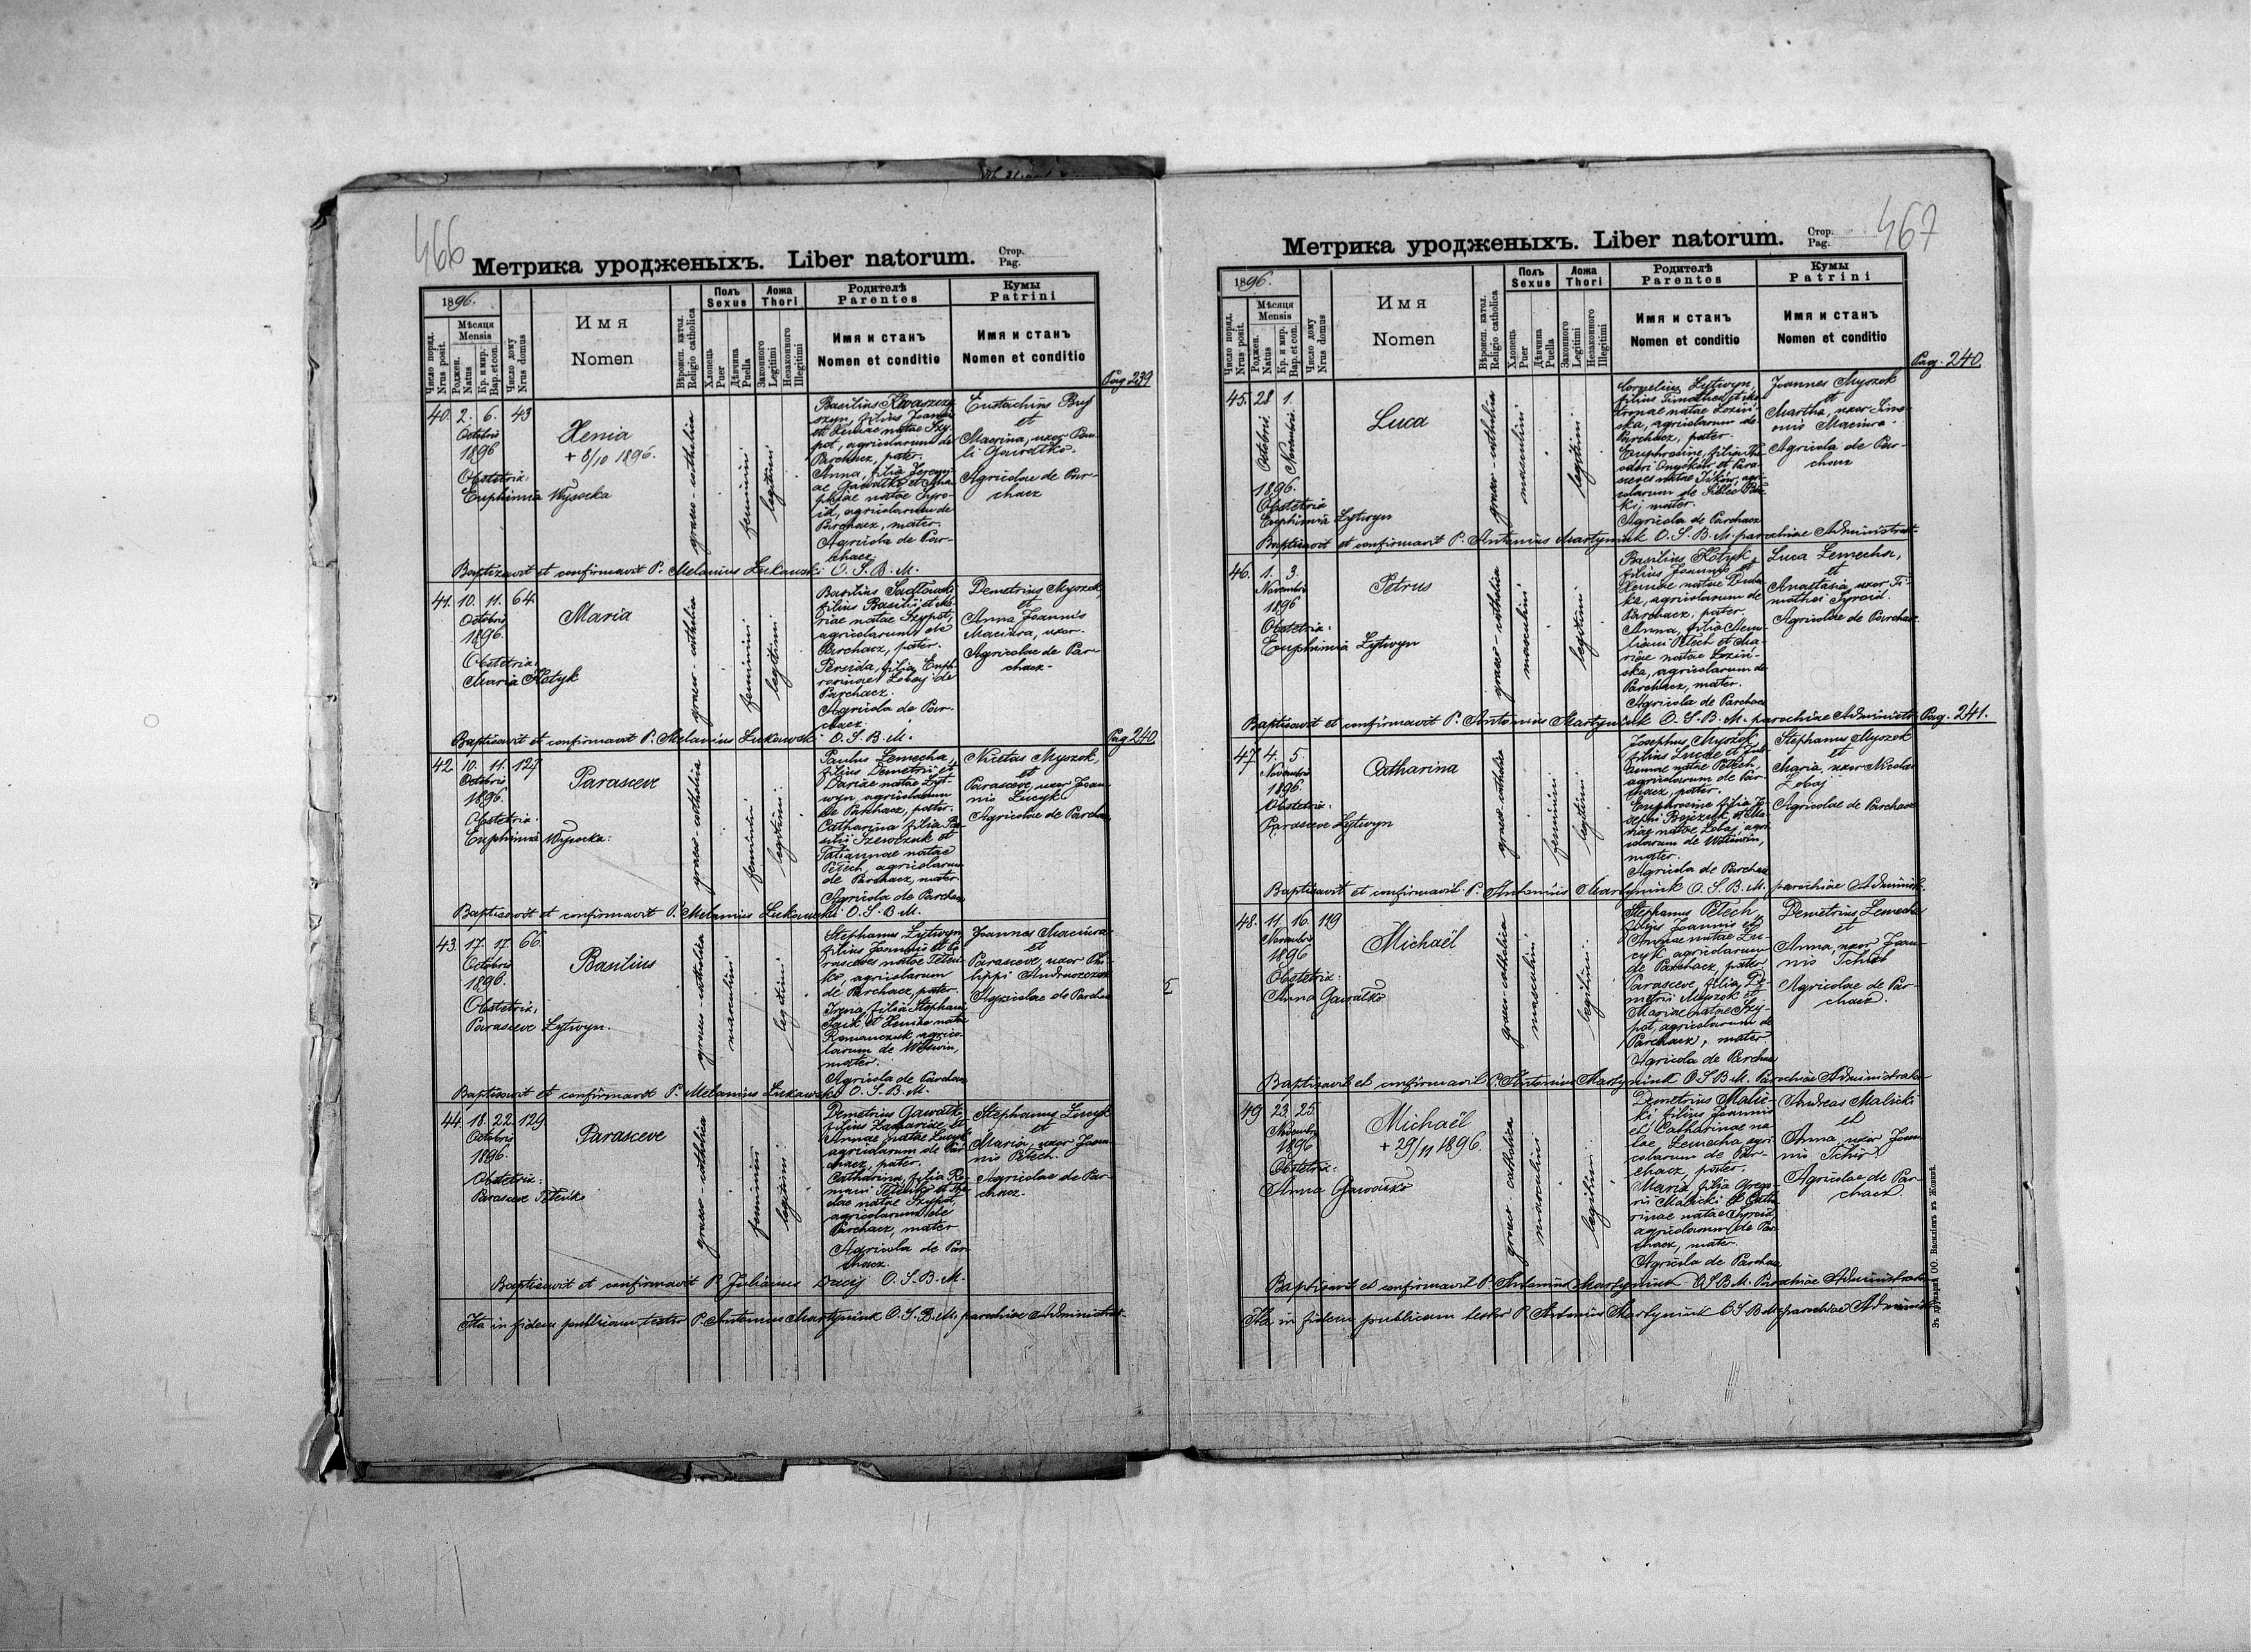 466
Метрика уродженыхъ. Liber natorum.
Стор.
Pag.
1896.
Число поряд.
Nrus posit.
Мѣсяця
Mensis
Роджен.
Natus
Кр. и мир.
Bap. et con.
Число дому
Nrus domus
Имя
Nomen
Вѣроисп. катол.
Religio catholica
Полъ
Sexus
Хлопець
Puer
Дѣвчина
Puella
Ложа
Thori
Законного
Legitimi
Незаконного
Illegitimi
Родителѣ
Parentes
Имя и станъ
Nomen et conditio
Кумы
Patrini
Имя и станъ
Nomen et conditio
Pag 239
40. 2. 6. 43
Octobris
1896
Obstetrix:
Euphimia Wysocka
Xenia
+ 8/10 1896.
graeco-catholica
feminini
legitimi
Basilius
filius Joannis
et Xeniae natae Szy-
pot, agricolarum de
Parchacz, pater.
Anna, filia
ae Gawałko et
natae Syro-
id, agricolarum de
Parchacz, mater.
Agricola de Par-
chacz.
Eustachius Buś
et
Macrina, uxor
li Gawałko.
Agricolae de Par-
chacz
Baptizavit et confirmavit P. Melanius Łukawski O. S. B. M.
41. 10. 11. 64
Octobris
1896.
Obstetrix:
Maria Kotyk
Maria
graeco-catholica
feminini
legitimi
Basilius Sadłowski
filius Basilii et Ma-
riae natae Szypot,
agricolarum de
Parchacz, pater.
Persida, filia Euph-
rosinae Łobaj de
Parchacz.
Agricola de Par-
chacz.
Demetrius Myszok,
et
Anna Joannis
Maciura, uxor.
Agricolae de Par-
chacz-
Baptisavit et confirmavit P. Melanius Łukawski O. S. B. M.
Pag 240
42. 10. 11. 127
Octobris
1896.
Obstetrix:
Euphimia Wysocka:
Parasceve
graeco-catholica
feminini
legitimi
Paulus Lemecha,
filius Demetrii et
Dariae natae Lyt-
wyn, agricolarum
de Parchacz, pater.
Catharina filia Ba-
silii Szewczuk et
Tatiannae natae
Petech, agricolarum
de Parchacz, mater
Agricola de Parchacz
Nicetas Myszok,
et
Parasceve, uxor Joan-
nis Łucyk
Agricolae de Parchacz
Baptisavit et confirmavit P. Melanius Łukawski O. S. B. M.
43. 17. 17. 66.
Octobris
1896.
Obstetrix:
Parasceve Lytwyn.
Basilius
graeco-catholica
masculini
legitimi
Stephanus Lytwyn
filius Joannis et Pa-
rasceves natae Teten-
ko, agricolarum
de Parchacz, pater.
Irena, filia Stephani
et natae
Romanczuk agrico-
larum de Witkwin,
mater.
Agricola de Parchacz
Joannes Maciura
et
Parasceve, uxor Phi-
lippi Andruszczak
Agricolae de Parchacz
Baptisavit et confirmavit P. Melanius Łukawski O. S. B. M.
44. 18. 22. 129
Octobris
1896.
Obstetrix:
Parasceve Tetenko
Parasceve
graeco-catholica
feminini
legitimi
Demetrius Gawałko
filius Zachariae et
Annae natae Łucyk
agricolarum de Par-
chacz, pater.
Catharina, filia Ro-
mani Tetenko et
natae Szypot,
agricolarum de
Parchacz, mater
Agricola de Par-
chacz.
Stephanus Łucyk
et
Maria, uxor Joan-
nis Petech.
Agricolae de Par-
chacz-
Baptisavit et confirmavit P. Julianus Dacij O. S. B. M.
Ita in fidem publicam testor P. Antonius Martyniuk O. S. B. M. parochiae Administrat.
467
Метрика уродженыхъ. Liber natorum.
Стор.
Pag.
1896.
Число поряд.
Nrus posit.
Мѣсяця
Mensis
Роджен.
Natus
Кр. и мир.
Bap. et con.
Число дому
Nrus domus
Имя
Nomen
Вѣроисп. катол.
Religio catholica
Полъ
Sexus
Хлопець
Puer
Дѣвчина
Puella
Ложа
Thori
Законного
Legitimi
Незаконного
Illegitimi
Родителѣ
Parentes
Имя и станъ
Nomen et conditio
Кумы
Patrini
Имя и станъ
Nomen et conditio
Pag. 240.
45. 28 1.
Octobris. Novembris.
1896.
Obstetrix
Euphimia Lytwyn
Luca
graeco-catholica
masculini
legitimi
Cornelius Lytwyn,
filius Timothei et Ma-
tronae natae Łozin-
ska, agricolarum de
Parchacz, pater.
Euphrosine, filia The-
odori Onyśków et Para-
sceves natae agri-
colarum de Silec
mater.
Agricola de Parchacz
Joannes Myszok
et
Martha, uxor Sime-
onis Maciura.
Agricola de Par-
chacz
Baptisavit et confirmavit P. Antonius Martyniuk O. S. B. M. parochiae Administrat.
46. 1. 3.
Novembris
1896
Obstetrix:
Euphimia Lytwyn
Petrus
graeco-catholica
masculini
legitimi
Basilius Kotyk,
filius Joannis et
Xeniae natae
ka, agricolarum de
Parchacz. pater.
Anna, filia Aemi-
liani Petech et Ma-
riae natae Łozin-
ska, agricolarum de
Parchacz, mater.
Agricola de Parchacz
Luca Lemecha,
et
Anastasia, uxor Ti-
mothei Syroid.
Agricolae de Parchacz
Baptisavit et confirmavit P. Antonius Martyniuk O. S. B. M. parochiae Administr.
Pag. 241.
47. 4. 5.
Novembris
1896.
Obstetrix:
Parasceve Lytwyn
Catharina
graeco-catholica
feminini
legitimi
Josephus Myszok
filius Lucae et Juli-
annae natae Petech,
agricolarum de Par-
chacz, pater.
Euphrosine filia Jo-
sephi Bojczuk, et Ma-
riae natae Łobaj, agri-
colarum de Witkwin,
mater.
Agricola de Parchacz
Stephanus Myszok
et
Maria, uxor Nicolai
Łobaj
Agricolae de Parchacz
Baptisavit et confirmavit P. Antonius Martyniuk O. S. B. M. parochiae Administr.
48. 11. 16. 119
Novembris
1896
Obstetrix:
Anna Gawałko
Michaël
graeco-catholica
masculini
legitimi
Stephanus Petech,
filius Joannis et
Annae natae Łu-
cyk agricolarum
de Parchacz, pater
Parasceve, filia De-
metrii Myszok et
Mariae natae Szy-
pot, agricolarum de
Parchacz, mater.
Agricola de Parchacz
Demetrius Lemecha
et
Anna, uxor Joan-
nis Tchir
Agricolae de Par-
chacz.
Baptisavit et confirmavit P. Antonius Martyniuk O S B M. Parochiae Administrator
49 23. 25.
Novembris
1896
Obstetrix:
Anna Gawałko
Michaël
+ 29/11 1896.
graeco-catholica
masculini
legitimi
Demetrius Malic-
ki filius Joannis
et Catharinae na-
tae Lemecha agri-
colarum de Par-
chacz, pater.
Maria filia Grego-
rii Malicki et Catha-
rinae natae Syroid
agricolarum de Par-
chacz, mater.
Agricola de Parchacz
Andreas Malicki
et
Anna, uxor Joan-
nis Tchir
Agricolae de Par-
chacz
Baptisavit et confirmavit P. Antonius Martyniuk O. S. B. M. Parochiae Administrator
Ita in fidem publicam testor P. Antonius Martyniuk O. S. B. M. parochiae Administr.
Зъ друкарнѣ ОО. Василіянъ въ Жовквѣ.